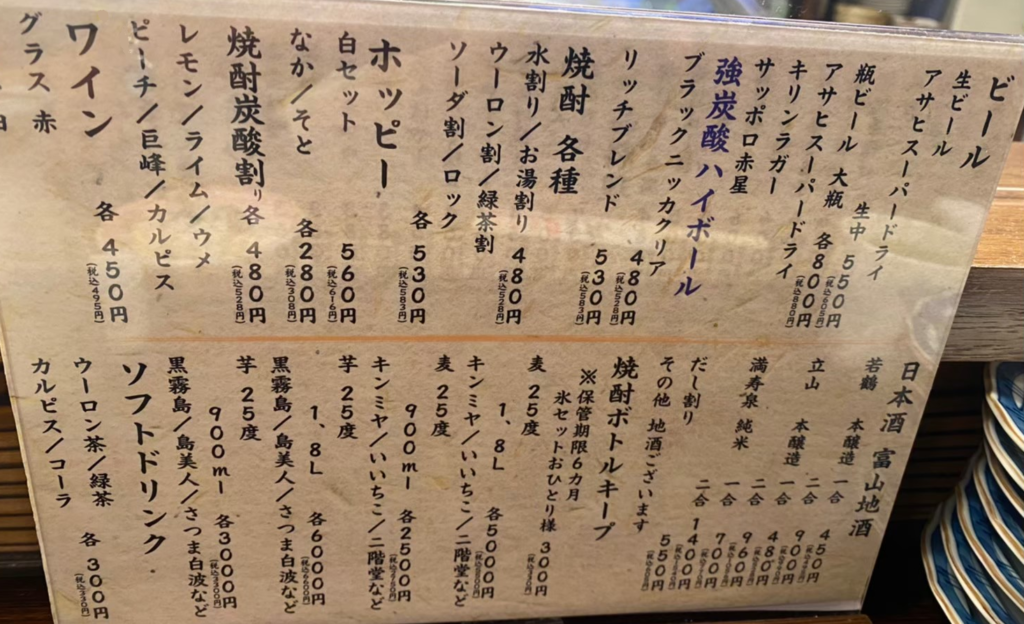 ビール
生ビール
アサヒスーパードライ
生中 550円
(税込605円)
瓶ビール 大瓶
アサヒスーパードライ
キリンラガー
サッポロ赤星
各800円
(税込880円)
強炭酸ハイボール
ブラックニッカクリア
480円
(税込528円)
リッチブレンド
530円
(税込583円)
焼酎 各種
水割り/お湯割り
ウーロン割/緑茶割
ソーダ割/ロック
480円
(税込528円)
各 530円
(税込583円)
ホッピー
白セット
560円
(税込616円)
なか/そと
各280円
(税込308円)
焼酎炭酸割り
各 480円
(税込528円)
レモン/ライム/ウメ
ピーチ/巨峰/カルピス
ワイン
各 450円
(税込495円)
グラス 赤
日本酒 富山地酒
若鶴 本醸造
一合 450円
二合 900円
立山 本醸造
一合 480円
二合 960円
満寿泉 純米
一合 700円
二合 1400円
だし割り
550円
その他 地酒ございます
焼酎ボトルキープ
※保管期限6カ月
氷セットおひとり様 300円
(税込330円)
麦 25度
1、8L
各5000円
キンミヤ/いいちこ/二階堂など
麦 25度
900ml
各2500円
キンミヤ/いいちこ/二階堂など
芋 25度
1、8L
各6000円
(税込6600円)
黒霧島/島美人/さつま白波など
芋 25度
900ml
各3000円
(税込3300円)
黒霧島/島美人/さつま白波など
ソフトドリンク
ウーロン茶/緑茶
カルピス/コーラ
各 300円
(税込330円)